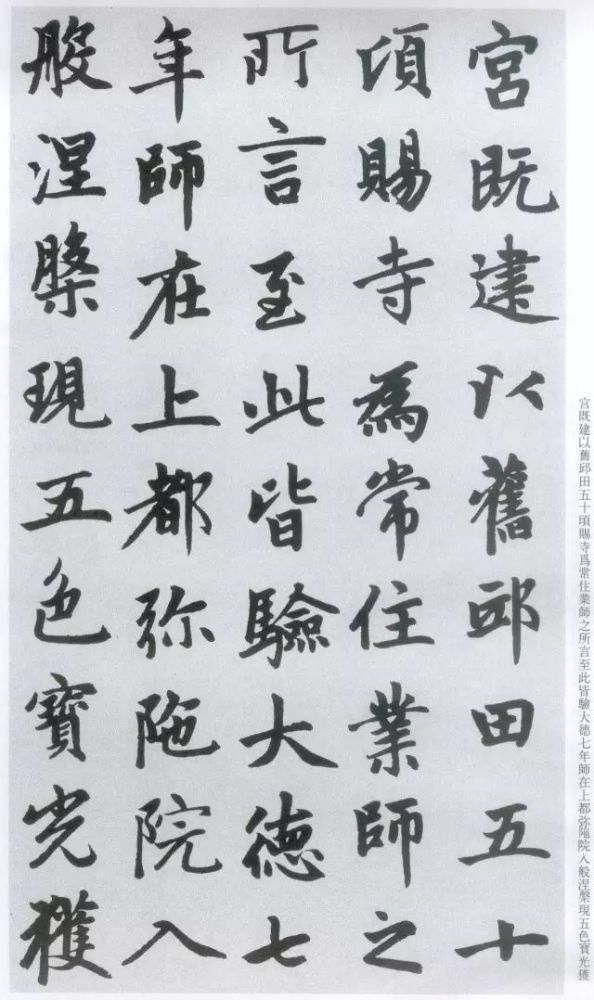 宮既建以舊邱田五十
頃賜寺為常住業師之
所言至此皆驗大德七
年師在上都弥陁院入
般涅槃現五色寶光獲
宮既建以舊邱田五十頃賜寺爲常住業師之所言至此皆驗大德七年師在上都弥陁院入般涅槃現五色寶光獲